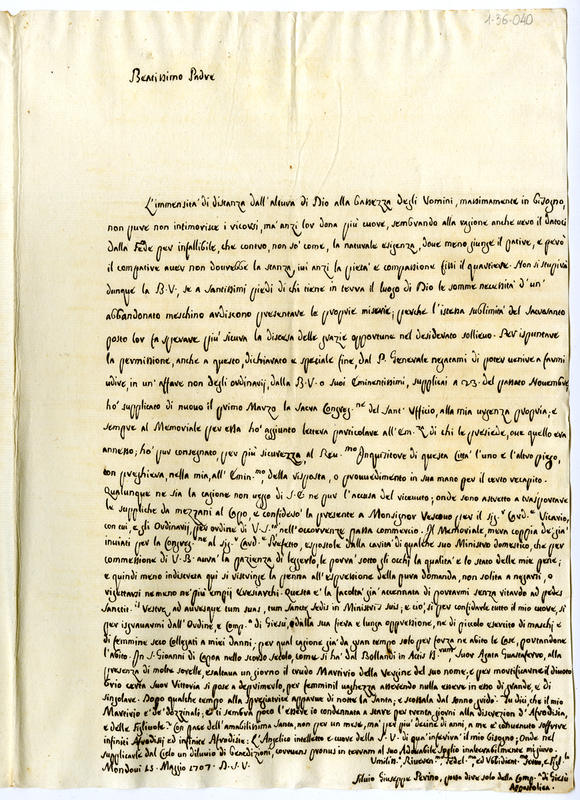 1-36-040
Beatissimo Padre
L'immensità di distanza dall'altura di Dio alla bassezza degli Uomini, massimamente in bisogno,
non pure non intimorisce i ricorsi, ma anzi lor dona più cuore, sembrando alla ragione anche vero il datoci
dalla Fede per infallibile, che contro, non so' come, la naturale esigenza, dove meno giunge il patire, e però
il compatire aver non dovrebbe la stanza, ivi anzi la pietà e compassione fissi il quartiere. Non si stupirà
dunque la B. V., se a Santissimi piedi di chi tiene in terra il luogo di Dio le somme necessità d'un'
abbandonato meschino ardiscono presentare le proprie miserie; perche l'istessa sublimità del Sacrosanto
posto lor fa sperare più sicura la discesa delle grazie opportune nel desiderato sollievo. Per ispuntare
la permissione, anche a questo, dichiarato e speciale fine, dal P. Generale negatami di poter venire a farmi
udire, in un' affare non degli ordinarij, dalla B. V. o suoi Eminentissimi, supplicai a 23. del passato Novembre
ho' supplicato di nuovo il primo Marzo la Sacra Congreg.ne del Sant' Ufficio, alla mia urgenza propria; e
sempre al Memoriale per essa ho' aggiunto lettera particolare all'Em.mo di chi le presiede, ove quello era
annesso; ho' pur consegnato per più sicurezza al Reu.mo Inquisitore di questa Città l'uno e l'altro piego,
con preghiera, nella mia, all' Emin.mo, della risposta, o provvedimento in sua mano per il certo recapito.
Qualunque ne sia la cagione non veggo di S. E. ne pur l'accusa del ricevuto; onde sono astretto a trasportare
le suppliche da mezzani al Capo, e confidero' la presente a Monsignor Vescovo per il sig.r Card.e Vicario,
con cui, e gli Ordinarij, per ordine di V. S.tà nell'occorrenze passa commercio. Il Memoriale, mera coppia de già
inviati per la Congreg.ne al sig.r Card.e Prefetto, espostole dalla carità di qualche suo Ministro domestico, che per
commessione di V. B. avrà la pazienza di leggerlo, le porrà sotto gli occhi la qualità e lo stato delle mie pene;
e quindi meno indiscreta qui si ristringe la penna all'espressione della pura domanda, non solita a negarsi, o
rigettarsi ne più empij Eresiarchi. Questa è la facoltà già accennata di portarmi senza ritardo ad pedes
Sanctit.is Vestrae, ad auresque tum suas, tum Sanctae Sedis in Ministris suis; e ciò, sì per confidarle tutto il mio cuore, sì
per isgravarmi dall'Ordine, e Comp.a di Giesù, e dalla sua fiera e lunga oppressione, ne di piccolo esercito di maschi e
di femmine seco collegati a miei danni; per qual cagione già da gran tempo solo per forza ne abito le Case, portandone
l'abito. In S. Gioanni di Capoa nello scorso secolo, come si ha' dal Bollandi in Actis SS.rum, Suor Agata Guastaferro, alla
presenza di molte sorelle, esaltava un giorno il crudo Martirio della Vergine del suo nome, e per mortificarne il divoto
brio certa Suor Vittoria si pose a deprimerlo, per femminil vaghezza asserendo nulla essere in esso di grande, e di
singolare. Dopo qualche tempo alla spregiatrice apparve di notte la Santa; e scossala dal sonno gridò: Tu dici, che il mio
Martirio è da dozzina; e ti sembra poco l'essere io condannata a stare per trenta giorni alla discrezion d'Afrodisia,
e delle Figliuole. Con pace dell'amabilissima Santa, non per un mese, ma' per più decine di anni, a me è convenuto soffrire
infiniti Afrodisij ed infinite Afrodisie. L'Angelico intelletto e cuore della S. V. di qua inferirà il mio bisogno; Onde nel
supplicarla dal Cielo un diluvio di benedizioni, corruens pronus in terram al suo Adorabile soglio inalterabilmente mi giuro.
Mondovì 13. Maggio 1707. B. S. V. Umiliss.o Riveren.mo Fedel.mo ed Ubbidient.mo Servo, e Figl.lo
Silvio Giuseppe Perino, posso dire solo della Comp.a di Giesù
Appostolica.